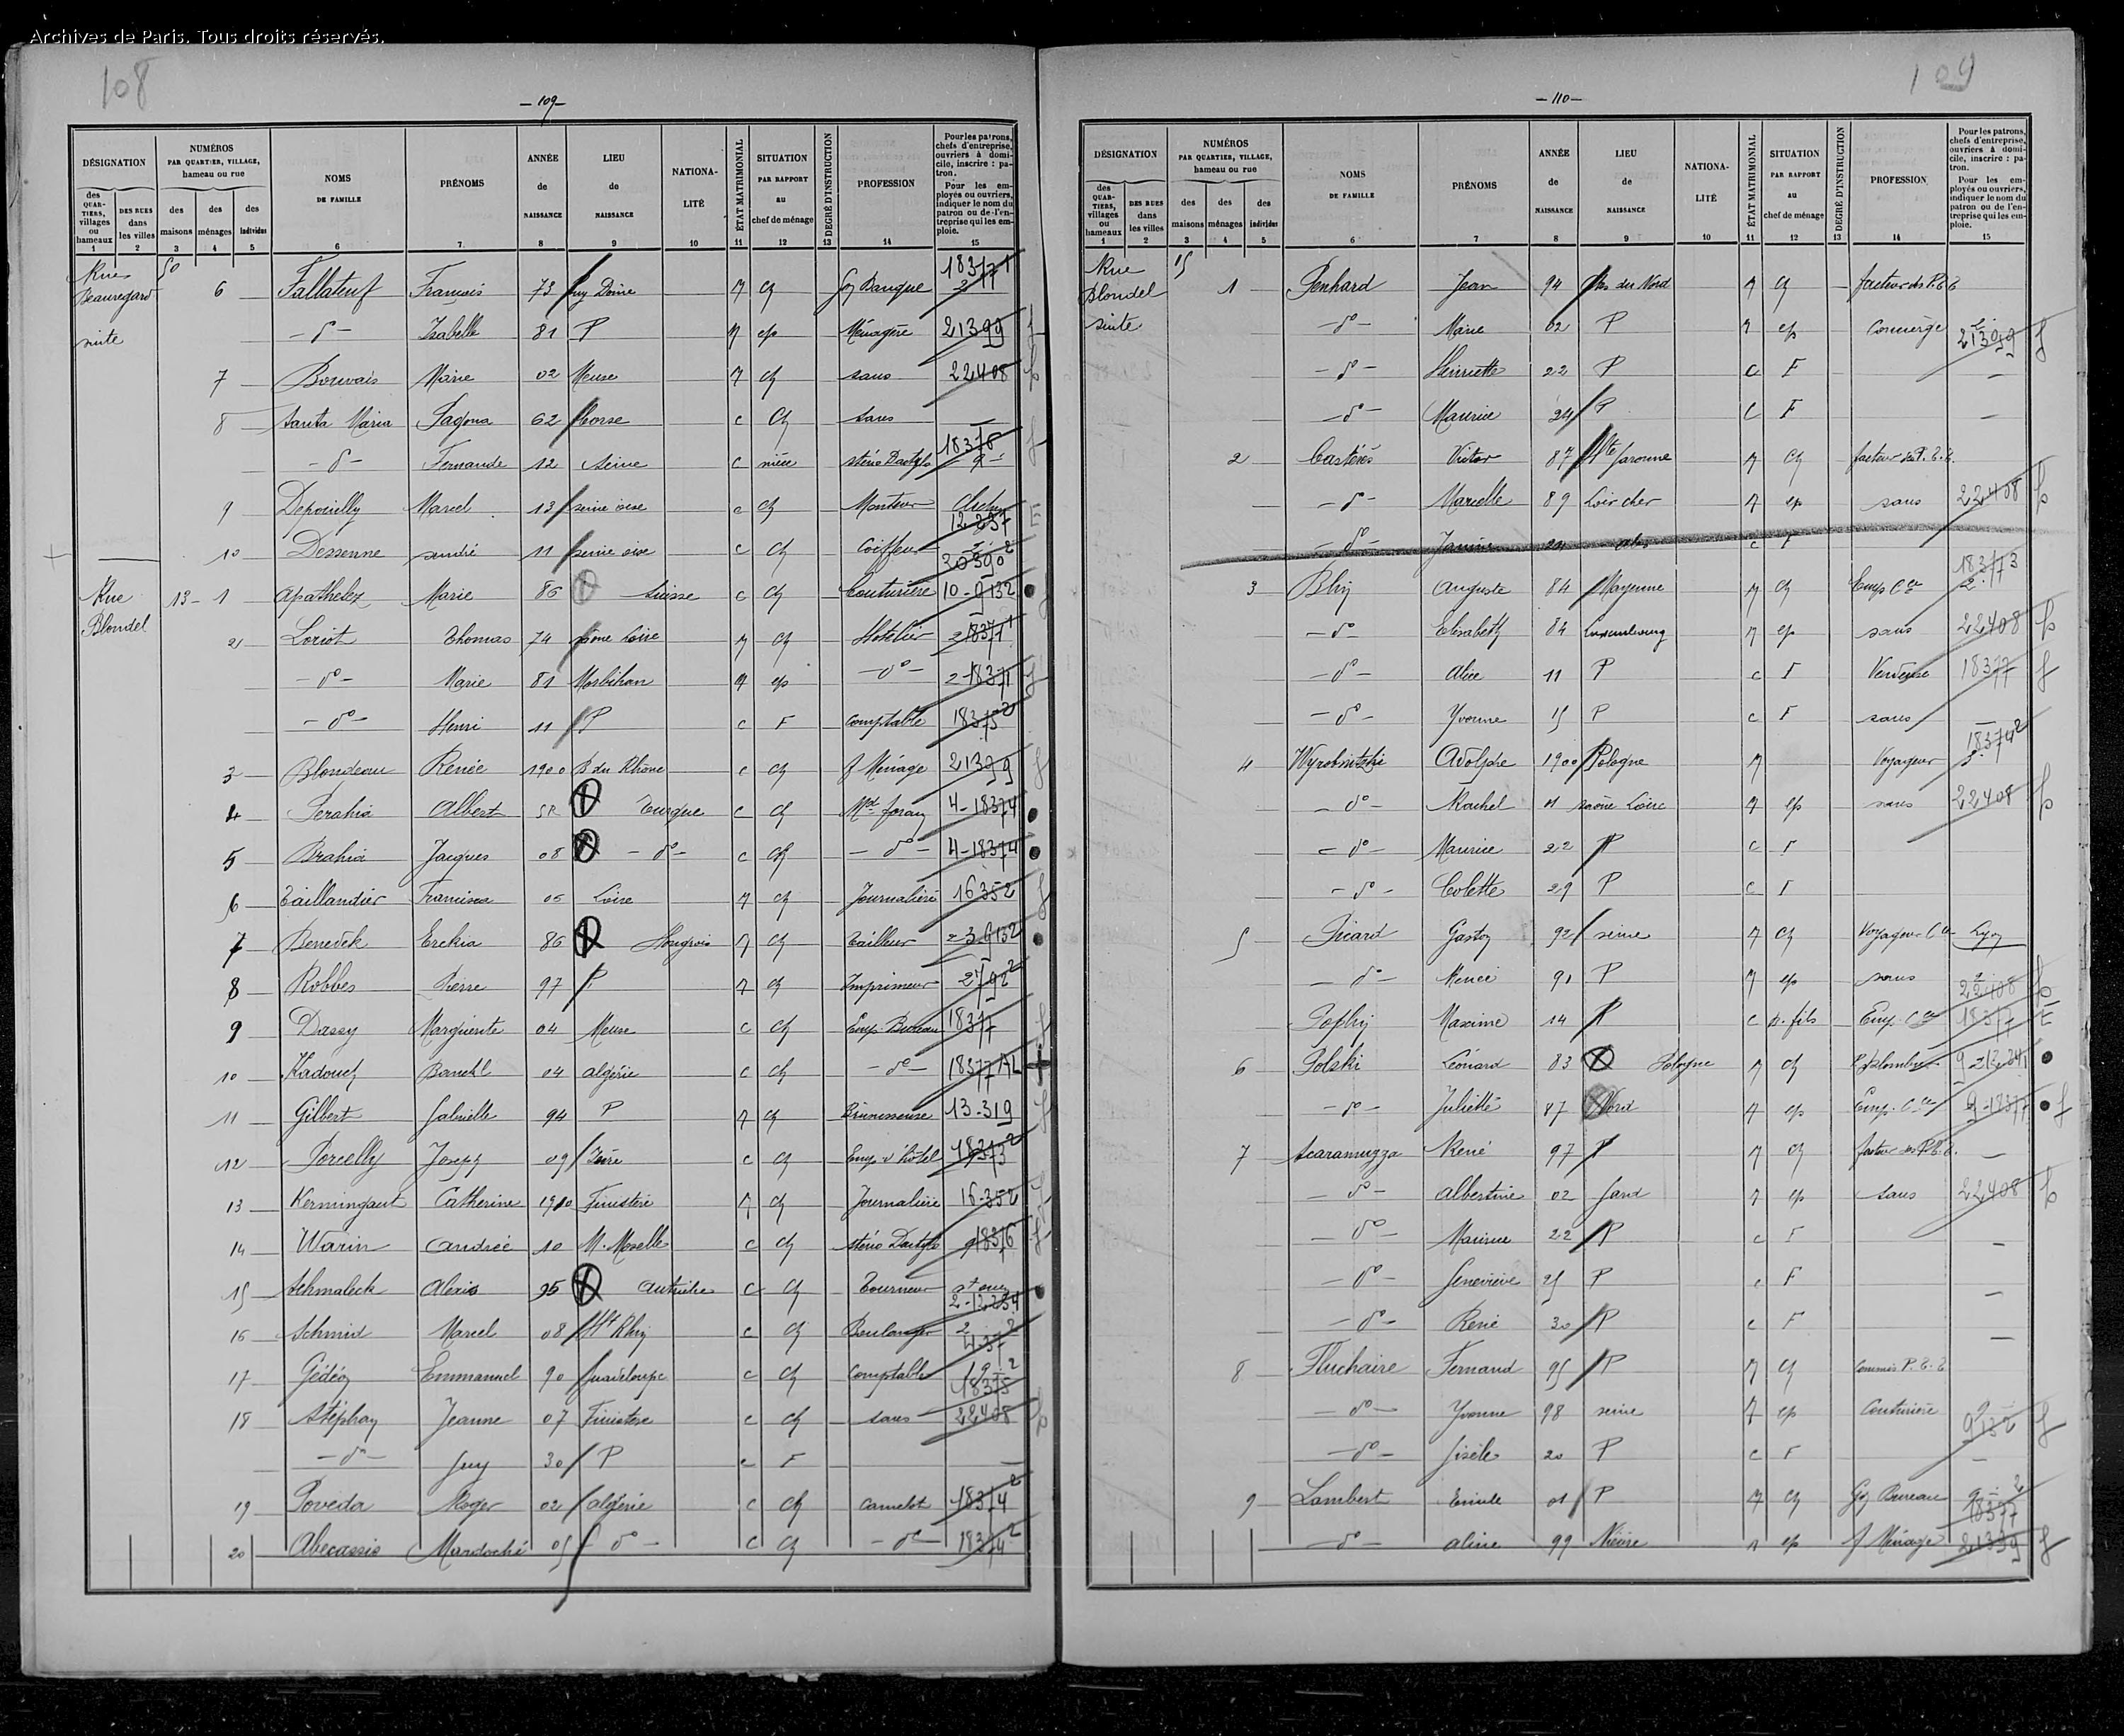 Archives de Paris. Tous droits réservés.
108
— 109 —
DÉSIGNATION
des QUARTIERS, villages ou hameaux 1
DES RUES dans les villes 2
NUMÉROS PAR QUARTIER, VILLAGE, hameau ou rue
des maisons 3
des ménages 4
des individus 5
NOMS DE FAMILLE 6
PRÉNOMS 7
ANNÉE de NAISSANCE 8
LIEU de NAISSANCE 9
NATIONALITÉ 10
ÉTAT MATRIMONIAL 11
SITUATION PAR RAPPORT au chef de ménage 12
DEGRÉ D'INSTRUCTION 13
PROFESSION 14
Pour les patrons, chefs d'entreprise, ouvriers à domicile, inscrire : patron. Pour les employés ou ouvriers, indiquer le nom du patron ou de l'entreprise qui les emploie. 15
Rue Beauregard suite 50
6 73 Puy Dôme M ch Banque 18371
— do — Isabelle 81 P M ep Ménagère 21399
7 Marie 02 Meuse M ch sans 22408
8 Santa Maria 62 Corse c ch sans —
— do — Fernande 12 Seine c nièce sténo Dactylo 18376
9 Depouilly Marcel 13 seine oise c ch Monteur Clichy 12257
10 Dessenne André 11 seine oise c ch Coiffeur 20590
Rue Blondel 13 - 1 Apathelez Marie 86 Suisse c ch Couturière 10-9132
2 Loriot Thomas 74 Saône Loire M ch Hotelier 18371
— do — Marie 81 Morbihan M ep — do — 2-18371
— do — Henri 11 P c F comptable 18375
3 Blondeau Renée 1900 B du Rhône c ch f Ménage 21399
4 Albert Turque c ch Md forain 4-18374
5 Jacques 08 — do — c ch — do — 4-18374
6 Taillandier 05 Loire M ch Journalière 16352
7 Benedek 86 Hongrois M ch Tailleur 9132
8 Robbes Pierre 97 P M ch Imprimeur
9 Dassy Marguerite 04 Meuse c ch Emp. Bureau 18377
10 Kadouch 04 Algérie c ch — do — 18377
11 Gilbert Gabrielle 94 P M ch 13-319
12 Porcelly Joseph 09 Isère c ch Emp. d'hôtel 18373
13 Kermingant Catherine 1910 Finistère M ch Journalière 16-352
14 Warin Andrée 10 M. Moselle c ch sténo Dactylo 18376
15 Schmaleck Alexis 95 Autriche c ch Tourneur
16 Schmid Marcel 08 Ht Rhin c ch Boulanger
17 Gédéon Emmanuel 90 Guadeloupe c ch comptable 18375
18 Stéphan Jeanne 07 Finistère c ch sans 22408
— do — Guy 30 P c F —
19 Poveda Roger 02 Algérie c ch camelot 18374
20 Abecassis Mardoché 05 — do — c ch — do — 18374
109
— 110 —
DÉSIGNATION
des QUARTIERS, villages ou hameaux 1
DES RUES dans les villes 2
NUMÉROS PAR QUARTIER, VILLAGE, hameau ou rue
des maisons 3
des ménages 4
des individus 5
NOMS DE FAMILLE 6
PRÉNOMS 7
ANNÉE de NAISSANCE 8
LIEU de NAISSANCE 9
NATIONALITÉ 10
ÉTAT MATRIMONIAL 11
SITUATION PAR RAPPORT au chef de ménage 12
DEGRÉ D'INSTRUCTION 13
PROFESSION 14
Pour les patrons, chefs d'entreprise, ouvriers à domicile, inscrire : patron. Pour les employés ou ouvriers, indiquer le nom du patron ou de l'entreprise qui les emploie. 15
Rue Blondel suite 15
1 Penhard Jean 94 Côtes du Nord M ch facteur des P.T.T
— do — Marie 02 P M ep Concierge 21399
— do — Henriette 22 P c F —
— do — Maurice 24 P c F —
2 Castérès Victor 87 Hte Garonne M ch facteur des P.T.T.
— do — Marcelle 89 Loir cher M ep sans 22408
— do — Janine 24 c F
3 Blin Auguste 84 Mayenne M ch Emp. Cce 18373
— do — Elisabeth 84 Luxembourg M ep sans 22408
— do — Alice 11 P c F Vendeuse 18377
— do — Yvonne 15 P c F sans —
4 Adolphe 1900 Pologne M Voyageur 18374
— do — Rachel 01 saône Loire M ep sans 22408
— do — Maurice 22 P c F
— do — Colette 29 P c F
5 Picard Gaston 92 seine M ch Voyageur Cce Lyon
— do — Renée 91 P M ep sans 22408
Maxime 14 P c b. fils Emp. Cce 18377
6 Polski Léonard 83 Pologne M ch
— do — Juliette 87 Nord M ep Emp. Cce 9-18377
7 Scaramuzza René 97 P M ch facteur des P.T.T. —
— do — Albertine 02 Gard M ep sans 22408
— do — Maurice 22 P c F —
— do — Geneviève 25 P c F —
— do — René 30 P c F —
8 Fluchaire Fernand 95 P M ch Commis P.T.T
— do — Yvonne 98 seine M ep Couturière 9132
— do — Gisèle 20 P c F —
9 Lambert Emile 01 P M ch Gon Bureau 18377
— do — Aline 99 Nièvre M ep f Ménage 21399